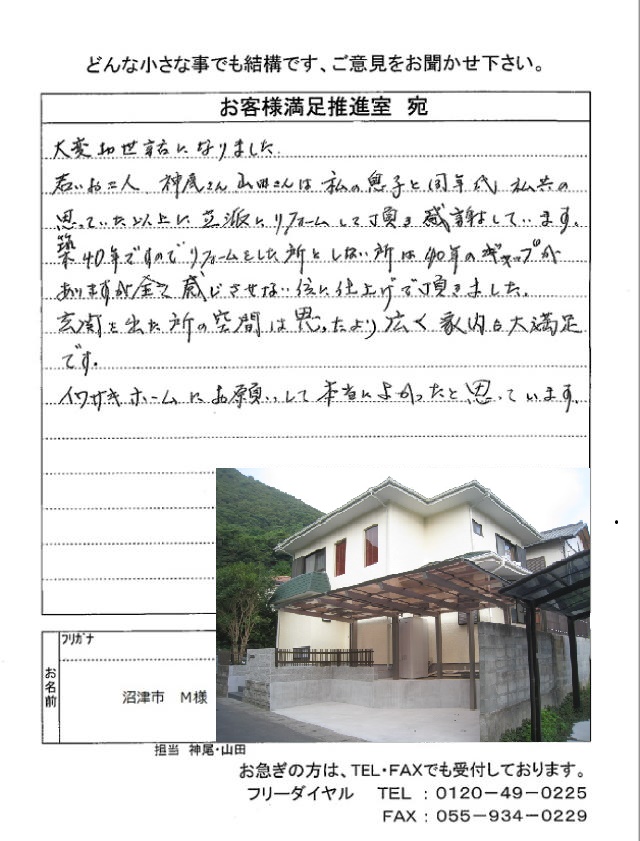 どんな小さな事でも結構です、ご意見をお聞かせ下さい。
お客様満足推進室 宛
大変お世話になりました
若いお二人 神尾さん山田さんは私の息子と同年代 私共の
思っていた以上に立派にリフォームして頂き感謝しています。
築40年ですのでリフォームをした所としない所は40年のギャップが
ありますが全く感じさせない位に仕上げて頂きました。
玄関を出た所の空間は思ったより広く家内も大満足
です。
イワサキホームにお願いして本当によかったと思っています。
フリガナ
お名前
沼津市 M様
担当 神尾・山田
お急ぎの方は、TEL・FAXでも受付しております。
フリーダイヤル TEL：0120－49－0225
FAX：055－934－0229